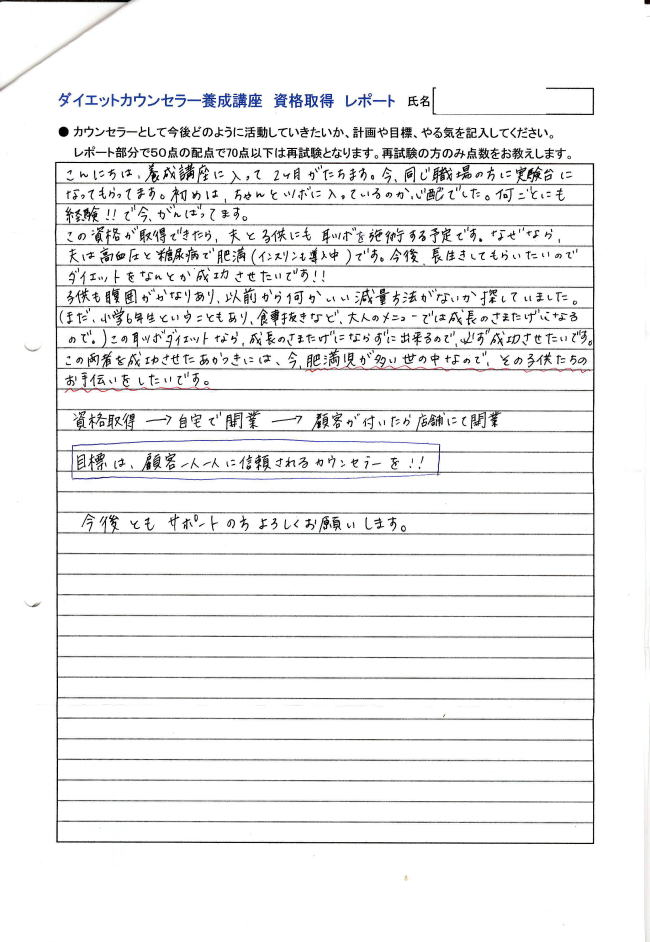 ダイエットカウンセラー養成講座 資格取得 レポート 氏名
● カウンセラーとして今後どのように活動していきたいか、計画や目標、やる気を記入してください。
レポート部分で50点の配点で70点以下は再試験となります。再試験の方のみ点数をお教えします。
こんにちは、養成講座に入って2ヶ月がたちます。今、同じ職場の方に実験台に
なってもらってます。初めは、ちゃんとツボに入っているのか、心配でした。何ごとにも
経験!!で今、がんばってます。
この資格が取得できたら、夫と子供にも耳ツボを施術する予定です。なぜなら、
夫は高血圧と糖尿病で肥満(インスリンも導入中)です。今後、長生きしてもらいたいので
ダイエットをなんとか成功させたいです!!
子供も腹囲がかなりあり、以前から何かいい減量方法がないか探していました。
(まだ、小学6年生ということもあり、食事抜きなど、大人のメニューでは成長のさまたげになる
ので。)この耳ツボダイエットなら、成長のさまたげにならずに出来るので、必ず成功させたいです。
この両者を成功させたあかつきには、今、肥満児が多い世の中なので、その子供たちの
お手伝いをしたいです。
資格取得 → 自宅で開業 → 顧客が付いたら店舗にて開業
目標は、顧客一人一人に信頼されるカウンセラーを!!
今後ともサポートの方よろしくお願いします。